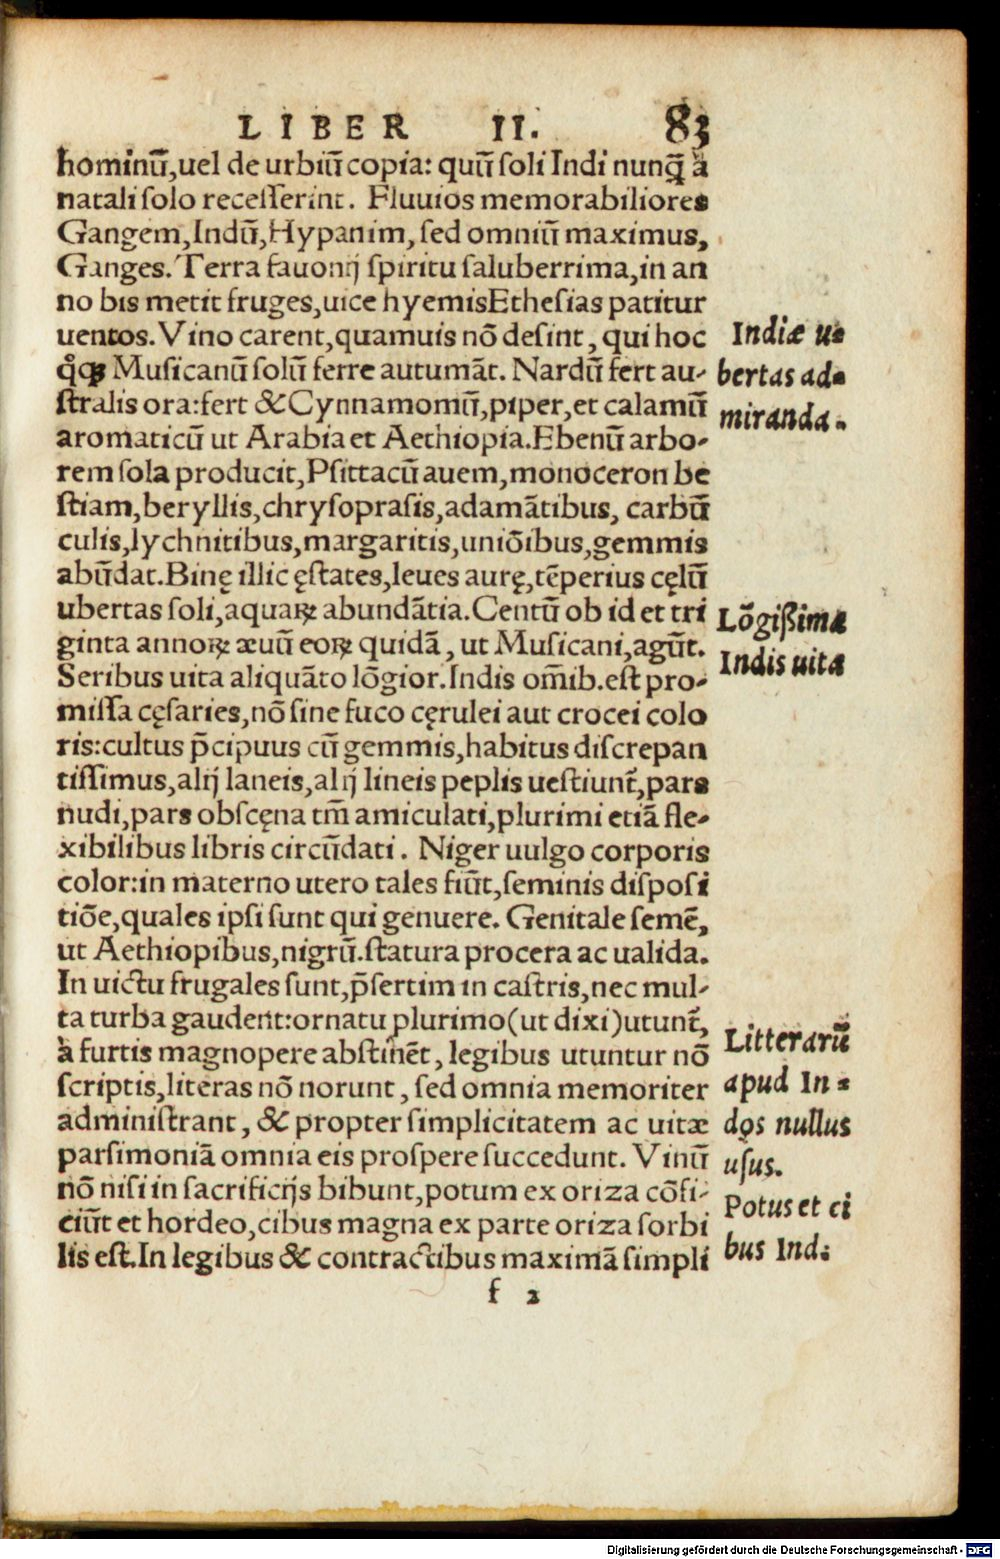 LIBER II. 83
hominū,uel de urbiū copia: quū soli Indi nunꝗ̃ à
natali solo recesserint. Fluuios memorabiliores
Gangem,Indū,Hypanim, sed omniū maximus,
Ganges. Terra fauonij spiritu saluberrima,in an
no bis metit fruges,uice hyemis Ethesias patitur
uentos. Vino carent,quamuis nō desint, qui hoc
Indiæ u-
qͦqꝫ Musicanū solū ferre autumāt. Nardū fert au-
bertas ad-
stralis ora:fert & Cynnamomū,piper,et calamū
miranda.
aromaticū ut Arabia et Aethiopia.Ebenū arbo-
rem sola producit,Psittacū auem,monoceron be
stiam,beryllis,chrysoprasis,adamātibus, carbū
culis,lychnitibus,margaritis,uniōibus,gemmis
abūdat.Binę illic ęstates,leues aurę,tēperius cęlū
ubertas soli,aquaꝝ abundātia.Centū ob id et tri
Lōgißimæ
ginta annoꝝ æuū eoꝝ quidā, ut Musicani,agūt.
Indis uitæ
Seribus uita aliquāto lōgior.Indis om̄ib.est pro-
missa cęsaries,nō sine fuco cęrulei aut crocei colo
ris:cultus p̄cipuus cū gemmis,habitus discrepan
tissimus,alij laneis,alij lineis peplis uestiunt̃,pars
nudi,pars obscęna tm̄ amiculati,plurimi etiā fle-
xibilibus libris circūdati. Niger uulgo corporis
color:in materno utero tales fiūt,seminis disposi
tiōe,quales ipsi sunt qui genuere. Genitale semē,
ut Aethiopibus,nigrū.statura procera ac ualida.
In uictu frugales sunt,p̄sertim in castris,nec mul-
ta turba gaudent:ornatu plurimo(ut dixi)utunt̃,
Litterarū
à furtis magnopere abstinēt, legibus utuntur nō
apud In-
scriptis,literas nō norunt, sed omnia memoriter
administrant, & propter simplicitatem ac uitæ
dos nullus
parsimoniā omnia eis prospere succedunt. Vinū
usus.
nō nisi in sacrificijs bibunt,potum ex oriza cōfi-
Potus et ci
ciūt et hordeo,cibus magna ex parte oriza sorbi
bus Indi
lis est.In legibus & contractibus maximā simpli
f 2
Digitalisierung gefördert durch die Deutsche Forschungsgemeinschaft - DFG